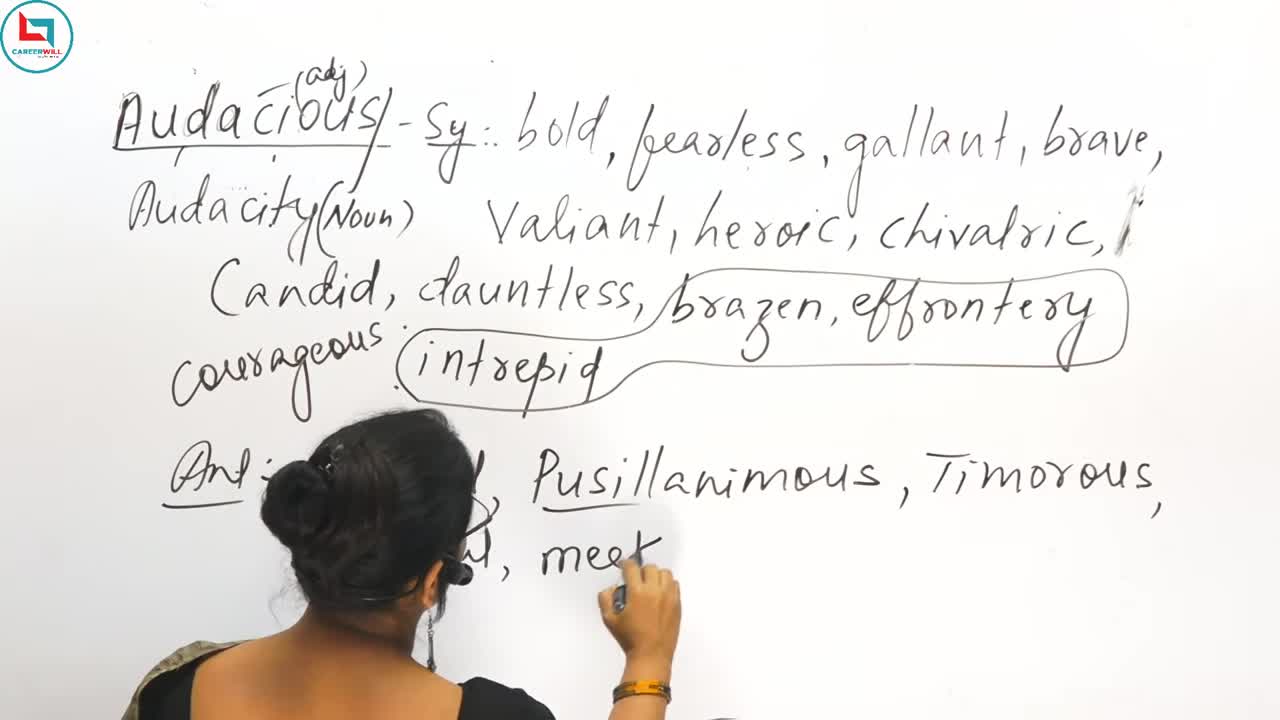 CAREERWILL
(adj)
Audacious - Sy:. bold, fearless, gallant, brave,
Audacity (Noun) Valiant, heroic, chivalric,
Candid, dauntless, brazen, effrontery
courageous intrepid
Ant :- Pusillanimous, Timorous,
meek